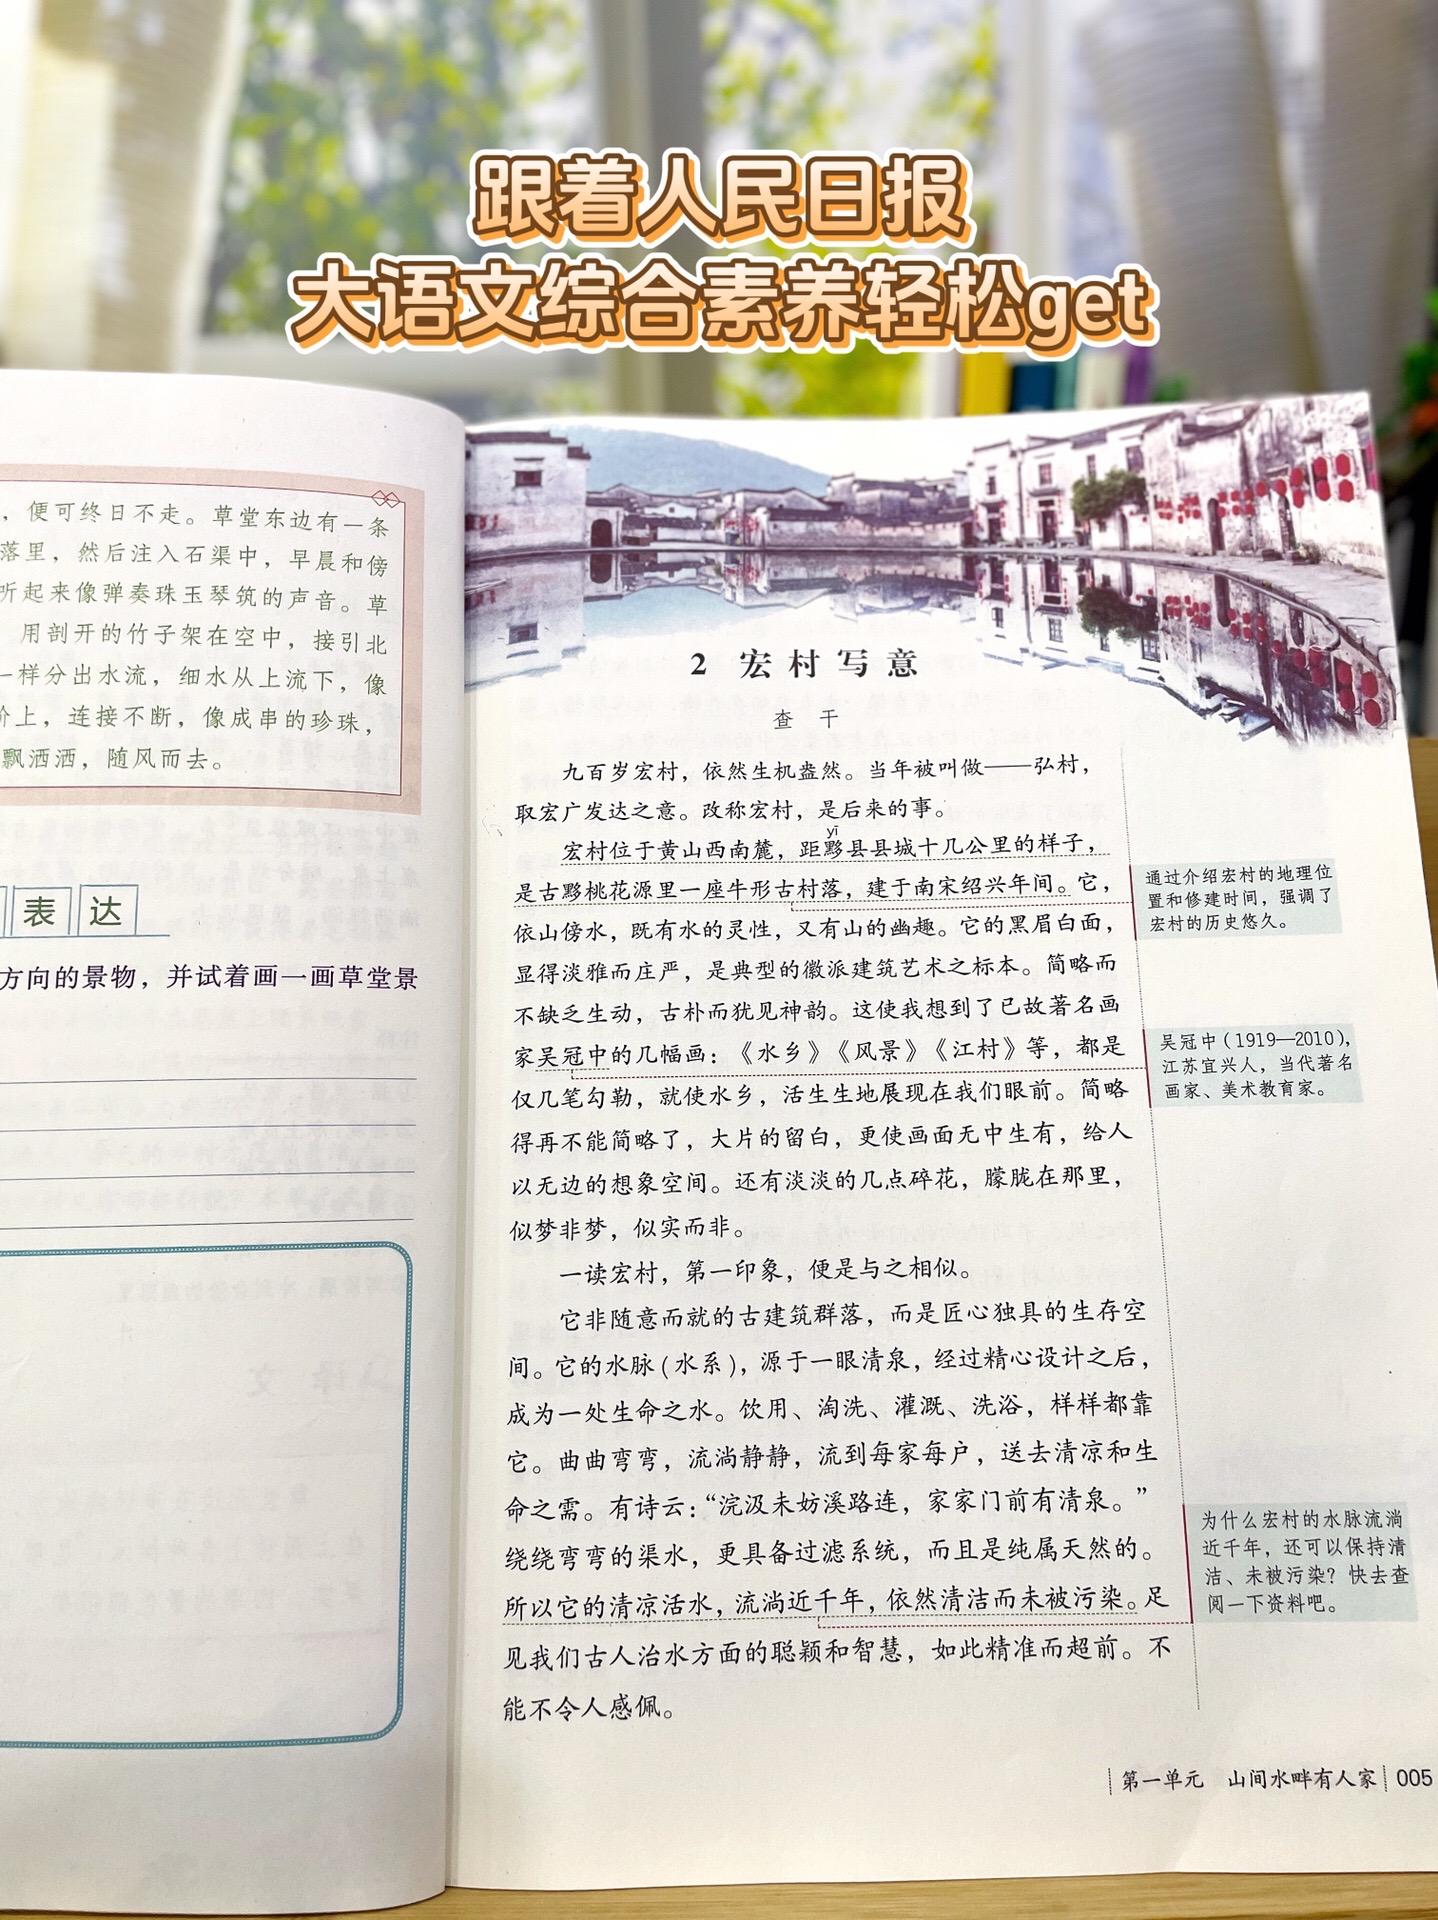 跟着人民日报
大语文综合素养轻松get
，便可终日不走。草堂东边有一条
落里，然后注入石渠中，早晨和傍
听起来像弹奏珠玉琴筑的声音。草
用剖开的竹子架在空中，接引北
一样分出水流，细水从上流下，像
阶上，连接不断，像成串的珍珠，
飘洒洒，随风而去。
表达
方向的景物，并试着画一画草堂景
2 宏村写意
查干
九百岁宏村，依然生机盎然。当年被叫做——弘村，
取宏广发达之意。改称宏村，是后来的事。
yī
宏村位于黄山西南麓，距黟县县城十几公里的样子，
是古黟桃花源里一座牛形古村落，建于南宋绍兴年间。它，
依山傍水，既有水的灵性，又有山的幽趣。它的黑眉白面，
显得淡雅而庄严，是典型的徽派建筑艺术之标本。简略而
不缺乏生动，古朴而犹见神韵。这使我想到了已故著名画
家吴冠中的几幅画：《水乡》《风景》《江村》等，都是
仅几笔勾勒，就使水乡，活生生地展现在我们眼前。简略
得再不能简略了，大片的留白，更使画面无中生有，给人
以无边的想象空间。还有淡淡的几点碎花，朦胧在那里，
似梦非梦，似实而非。
一读宏村，第一印象，便是与之相似。
它非随意而就的古建筑群落，而是匠心独具的生存空
间。它的水脉（水系），源于一眼清泉，经过精心设计之后，
成为一处生命之水。饮用、淘洗、灌溉、洗浴，样样都靠
它。曲曲弯弯，流淌静静，流到每家每户，送去清凉和生
命之需。有诗云：“浣汲未妨溪路连，家家门前有清泉。”
绕绕弯弯的渠水，更具备过滤系统，而且是纯属天然的。
所以它的清凉活水，流淌近千年，依然清洁而未被污染。足
见我们古人治水方面的聪颖和智慧，如此精准而超前。不
能不令人感佩。
通过介绍宏村的地理位
置和修建时间，强调了
宏村的历史悠久。
吴冠中（1919—2010），
江苏宜兴人，当代著名
画家、美术教育家。
为什么宏村的水脉流淌
近千年，还可以保持清
洁、未被污染？快去查
阅一下资料吧。
第一单元 山间水畔有人家 005